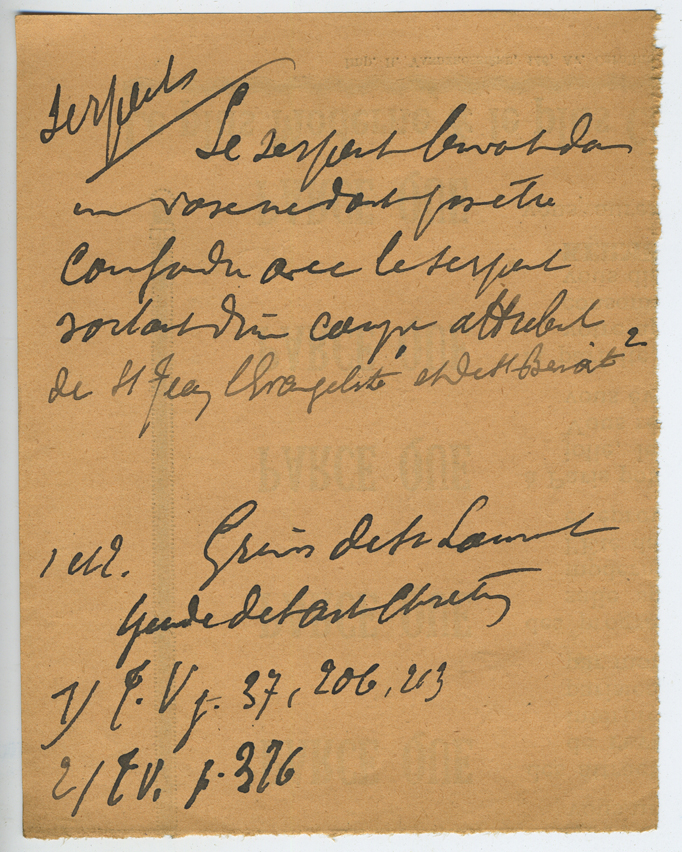 Serpents
Le serpent buvant dans
un vase ne doit pas être
confondu avec le serpent
sortant d'une coupe attribut
de St Jean l'Evangeliste 1 et de St Benoit 2
1 et 2. Grimoüard de St Laurent
Guide de l'art Chretien
1/ T. V p. 37, 206, 213
2/ T V. p. 376